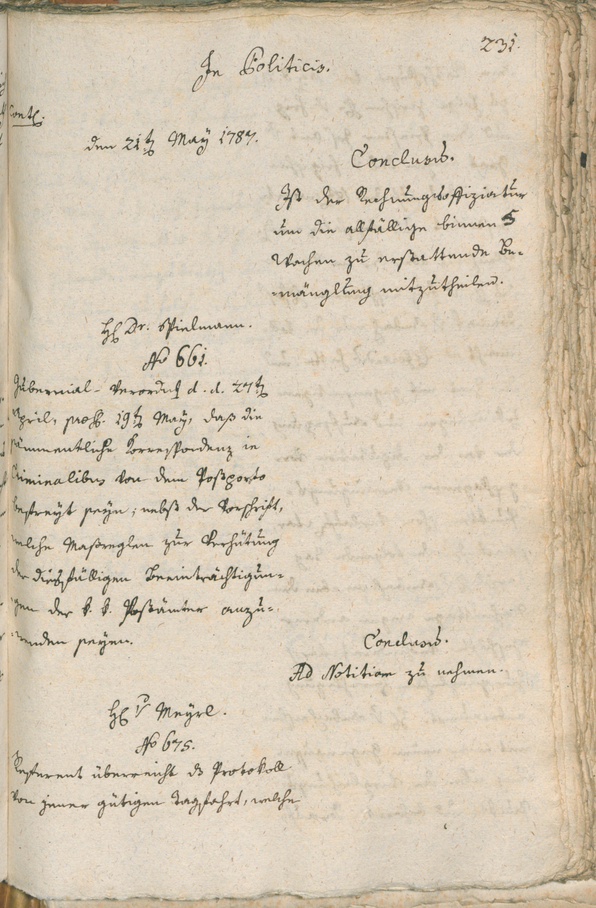 231.
In Politicis.
Contl:
den 21t May 1787.
Conclusum.
Ist der Rechnungsoffiziatur
um die allfällige binnen 5
Wochen zu erstattende Be-
mänglung mitzutheilen.
H Dr. Spielmann.
No 661.
Gubernial-Verordn d. d. 27t
April, 19t May, daß die
sämmentliche Korrespondenz in
Criminalibus von dem Postporto
befreyt seyn; nebst der Vorschrift,
welche Maßreglen zur Verhütung
der dießfälligen Beeinträchtigun-
gen der k. k. Postämter anzu-
wenden seyen.
Conclusum.
Ad Notitiam zu nehmen.
H v Meyrl.
No 675.
Referent überreicht ds Protokoll
von jener gütigen Tagsfahrt, welche